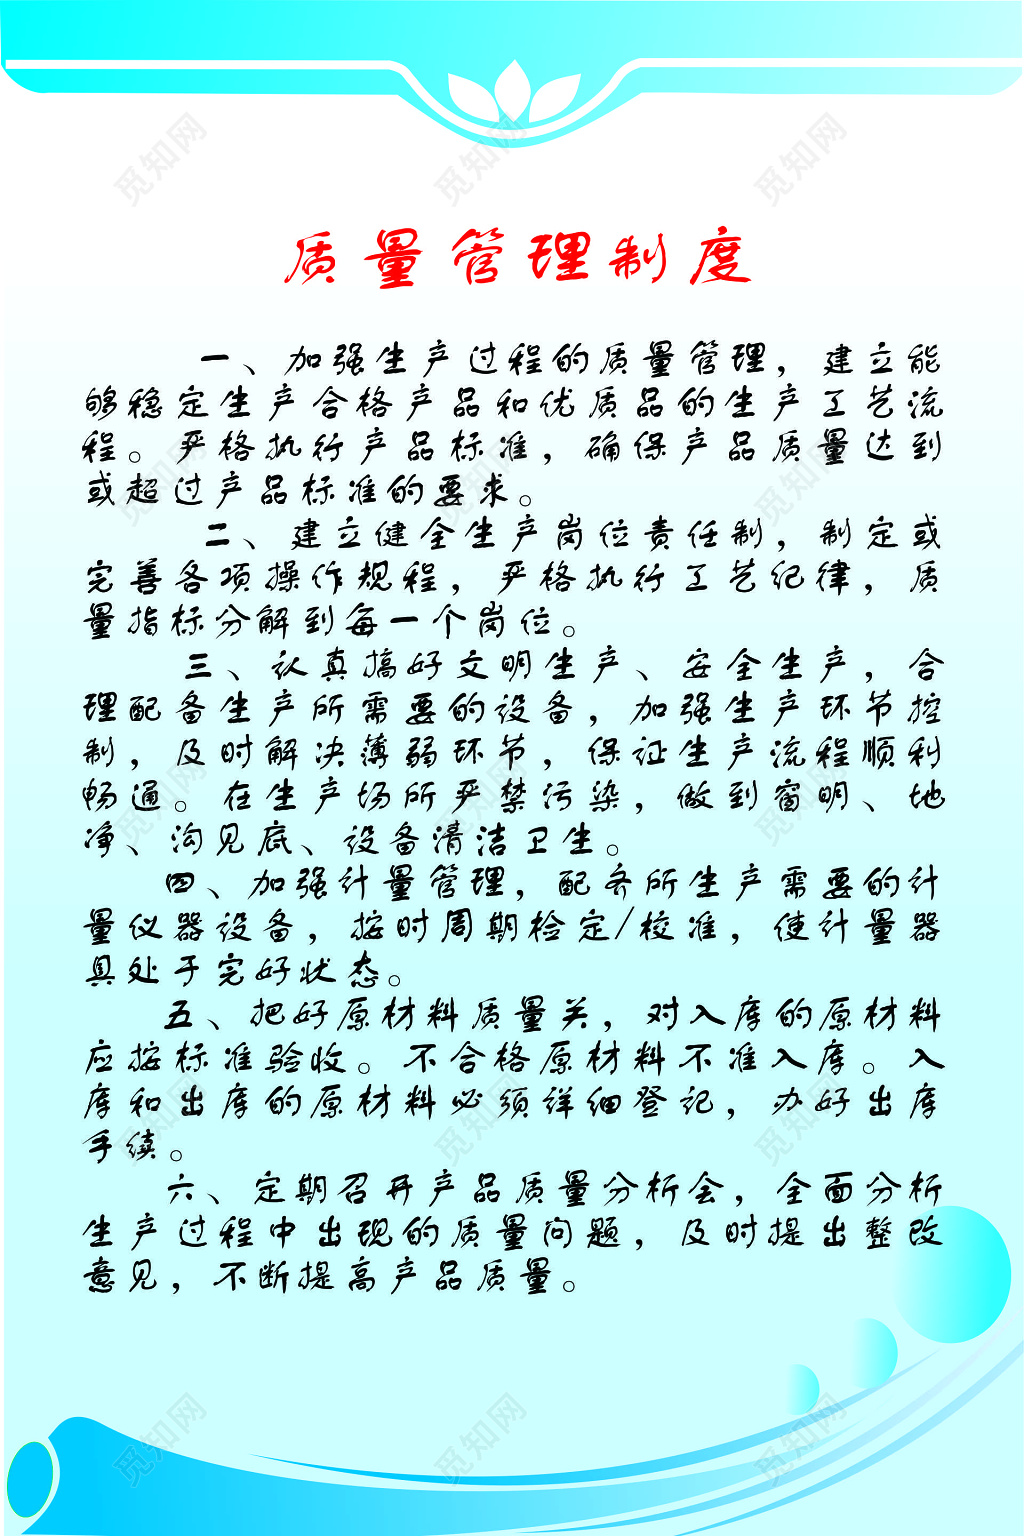 质量管理制度
一、加强生产过程的质量管理，建立能
够稳定生产合格产品和优质品的生产工艺流
程。严格执行产品标准，确保产品质量达到
或超过产品标准的要求。
二、建立健全生产岗位责任制，制定或
完善各项操作规程，严格执行工艺纪律，质
量指标分解到每一个岗位。
三、认真搞好文明生产、安全生产，合
理配备生产所需要的设备，加强生产环节控
制，及时解决薄弱环节，保证生产流程顺利
畅通。在生产场所严禁污染，做到窗明、地
净、沟见底、设备清洁卫生。
四、加强计量管理，配齐所生产需要的计
量仪器设备，按时周期检定/校准，使计量器
具处于完好状态。
五、把好原材料质量关，对入库的原材料
应按标准验收。不合格原材料不准入库。入
库和出库的原材料必须详细登记，办好出库
手续。
六、定期召开产品质量分析会，全面分析
生产过程中出现的质量问题，及时提出整改
意见，不断提高产品质量。
觅知网